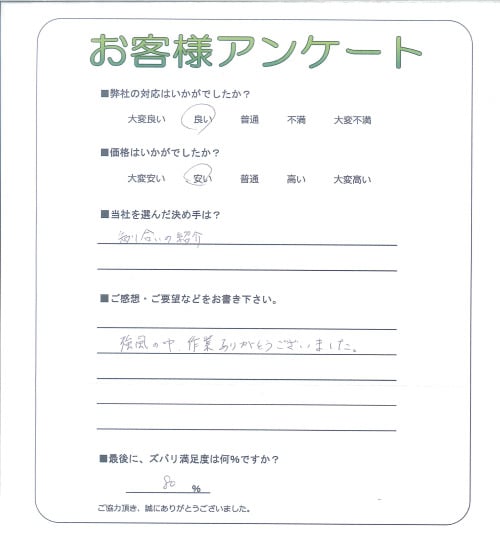 お客様アンケート
■弊社の対応はいかがでしたか？
大変良い 良い 普通 不満 大変不満
■価格はいかがでしたか？
大変安い 安い 普通 高い 大変高い
■当社を選んだ決め手は？
知り合いの紹介
■ご感想・ご要望などをお書き下さい。
強風の中、作業ありがとうございました。
■最後に、ズバリ満足度は何%ですか？
80 %
ご協力頂き、誠にありがとうございました。